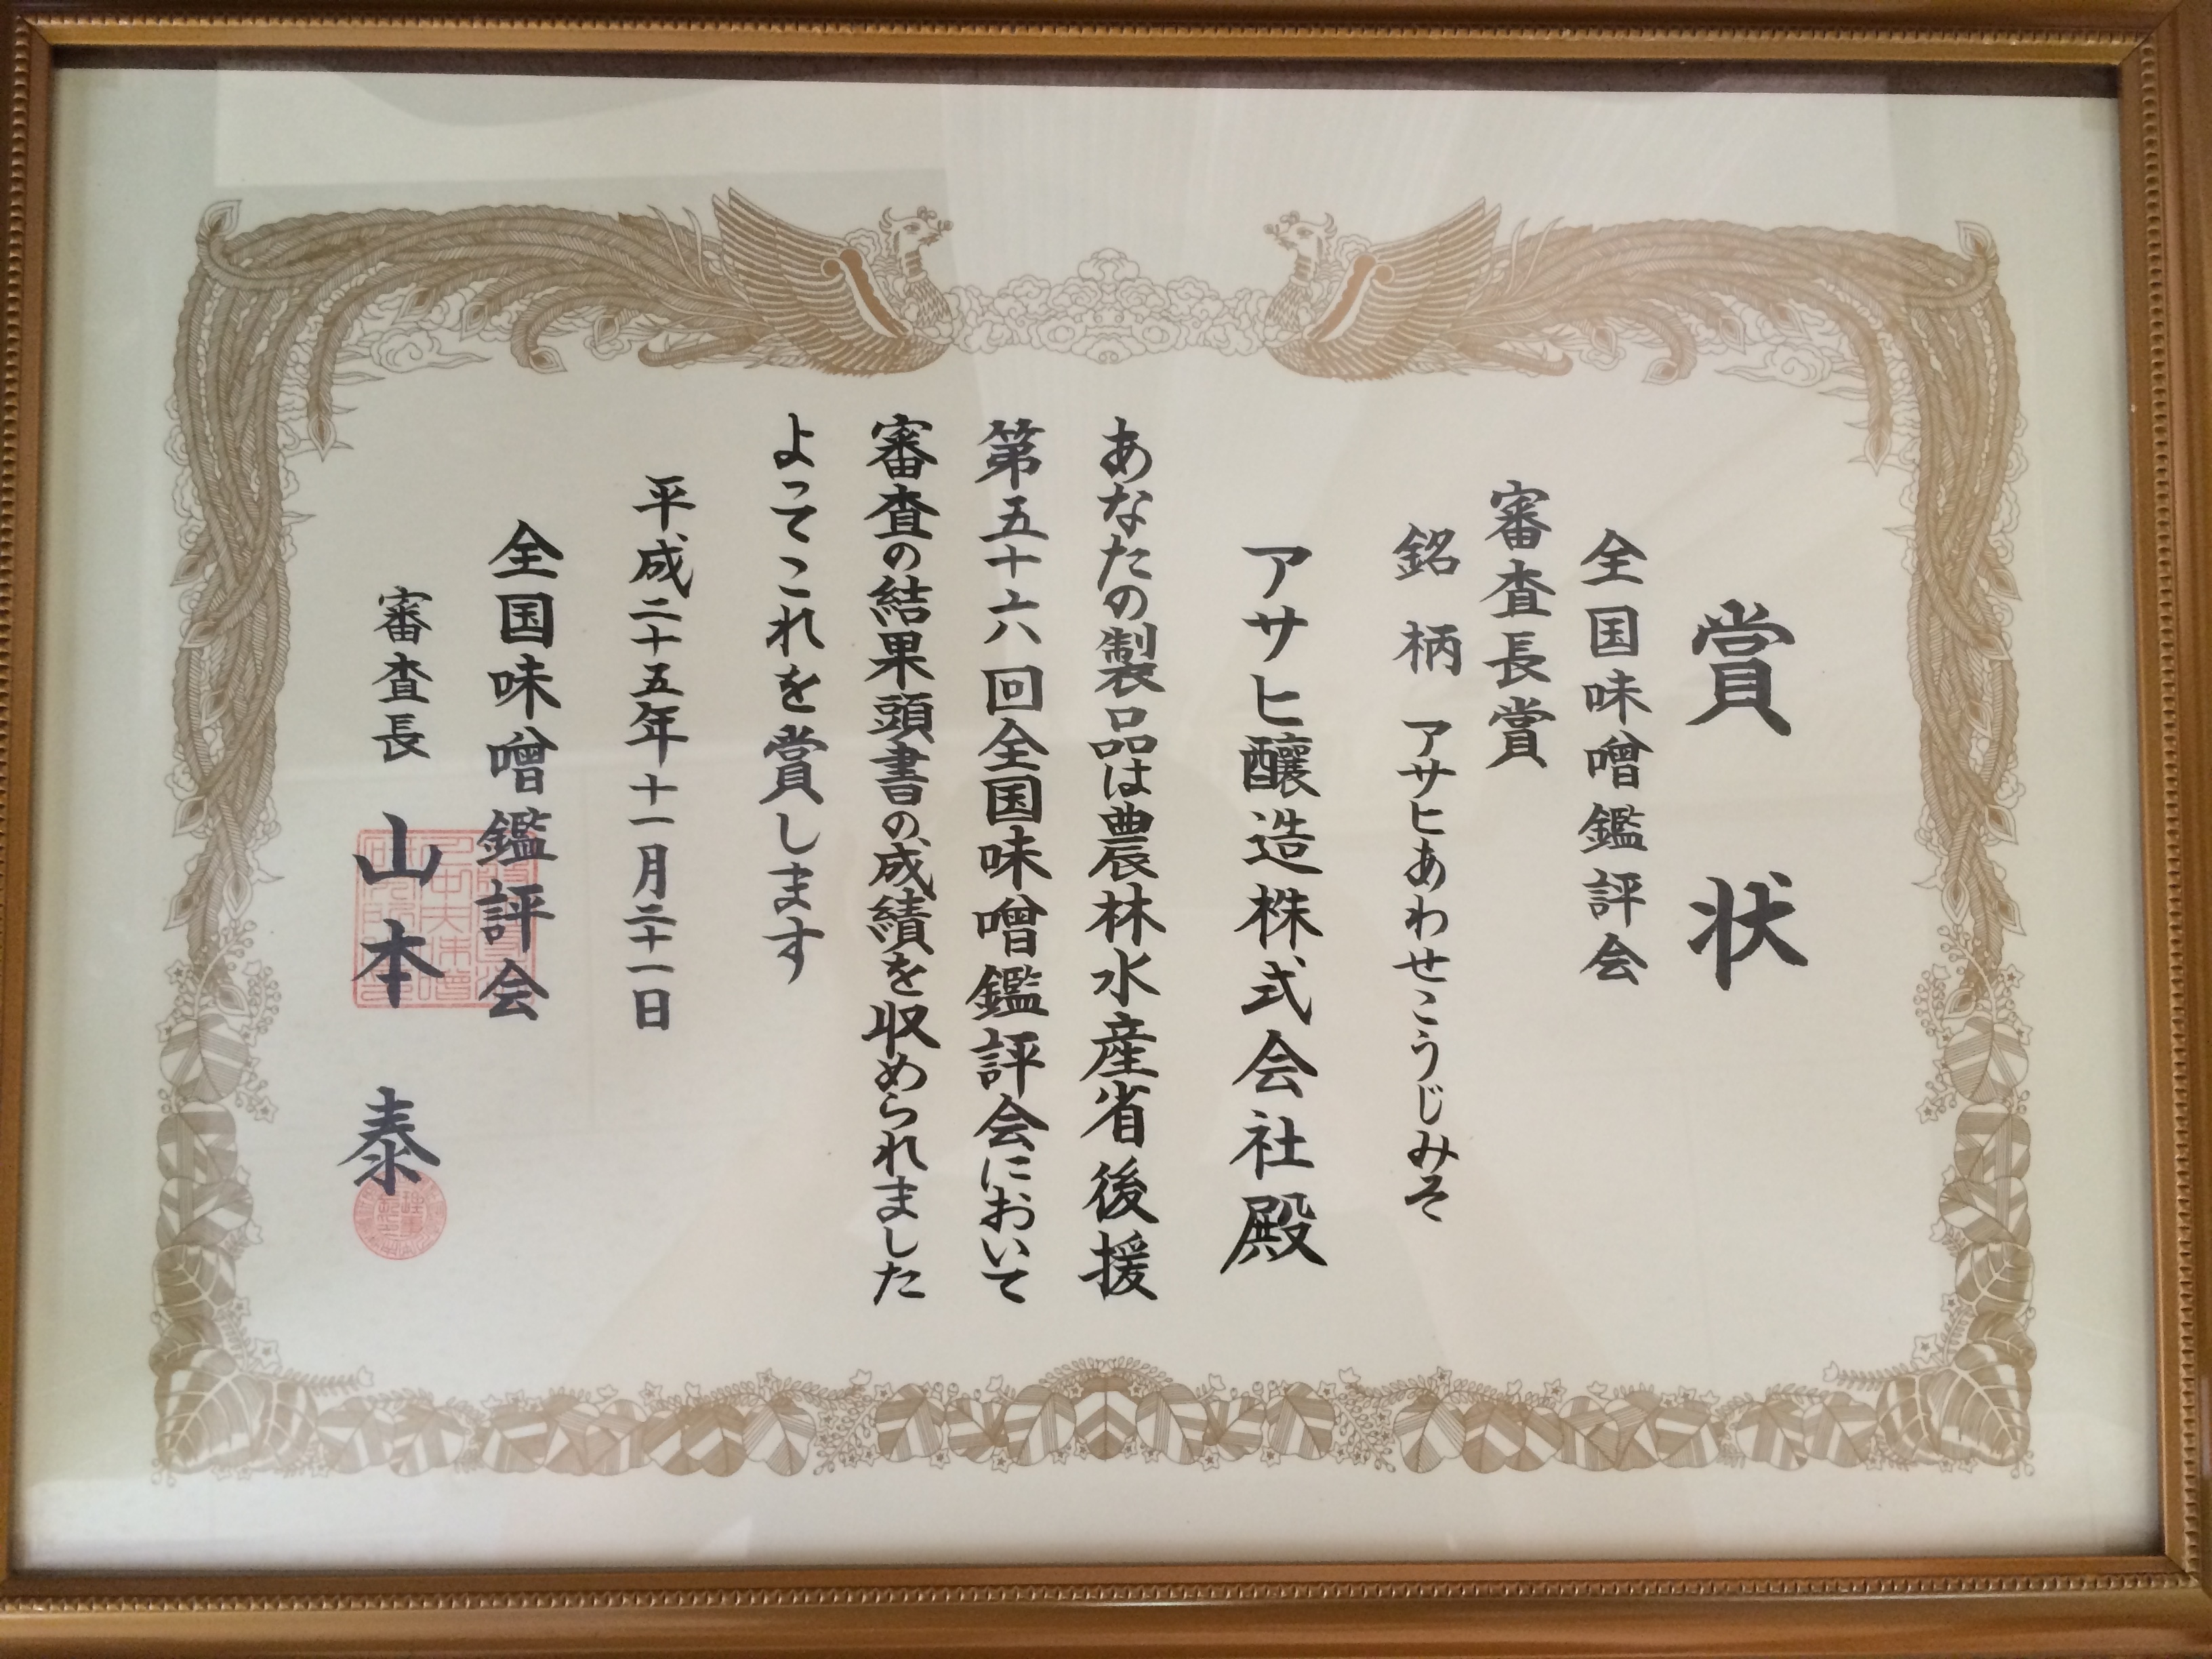 賞状
全国味噌鑑評会
審査長賞
銘柄 アサヒあわせこうじみそ
アサヒ醸造株式会社殿
あなたの製品は農林水産省後援
第五十六回全国味噌鑑評会において
審査の結果頭書の成績を収められました
よってこれを賞します
平成二十五年十一月二十一日
全国味噌鑑評会
審査長 山本 泰